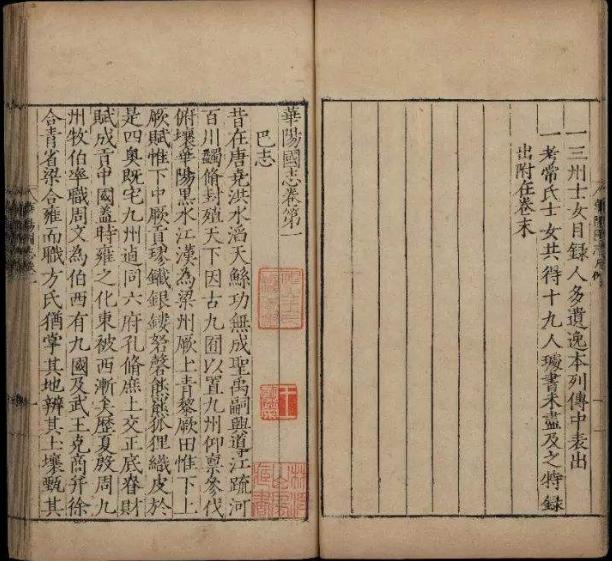 一三州士女目録人多遺逸本列傳中表出
一考常氏士女共得十九人璩書未盡及之特録
出附在卷末
華陽國志卷第一
巴志
昔在唐堯洪水滔天鯀功無成聖禹嗣興導江疏河
百川蠲脩封殖天下因古九囿以置九州仰禀參伐
俯壤華陽黑水江漢為梁州厥土青黎厥田惟下上
厥賦惟下中厥貢璆鐵銀鏤砮磬熊羆狐狸織皮於
是四奧既宅九州逌同六府孔脩庶土交正底眘財
賦成貢中國蓋時雍之化東被西漸矣歷夏殷周九
州牧伯率職周文為伯西有九國及武王克商并徐
合青省梁合雍而職方氏猶掌其地辨其土壤甄其